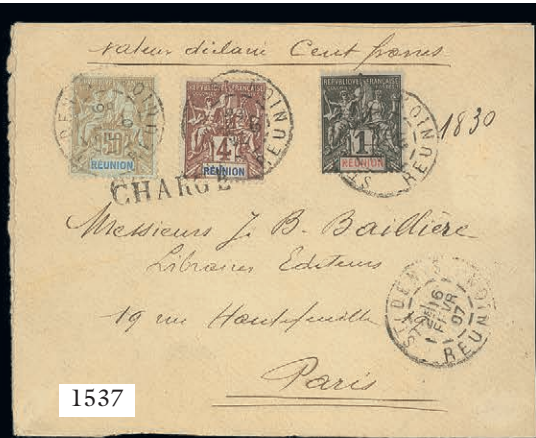 Valeur déclaré Cent francs
REPUBLIQUE FRANÇAISE
50
RÉUNION
REPUBLIQUE FRANÇAISE
4
RÉUNION
REPUBLIQUE FRANÇAISE
1
RÉUNION
1830
CHARGÉ
Messieurs J. B. Baillière
Libraires Editeurs
19 rue Hautefeuille
Paris
ST DENIS
REUNION
16
FEVR
97
1537